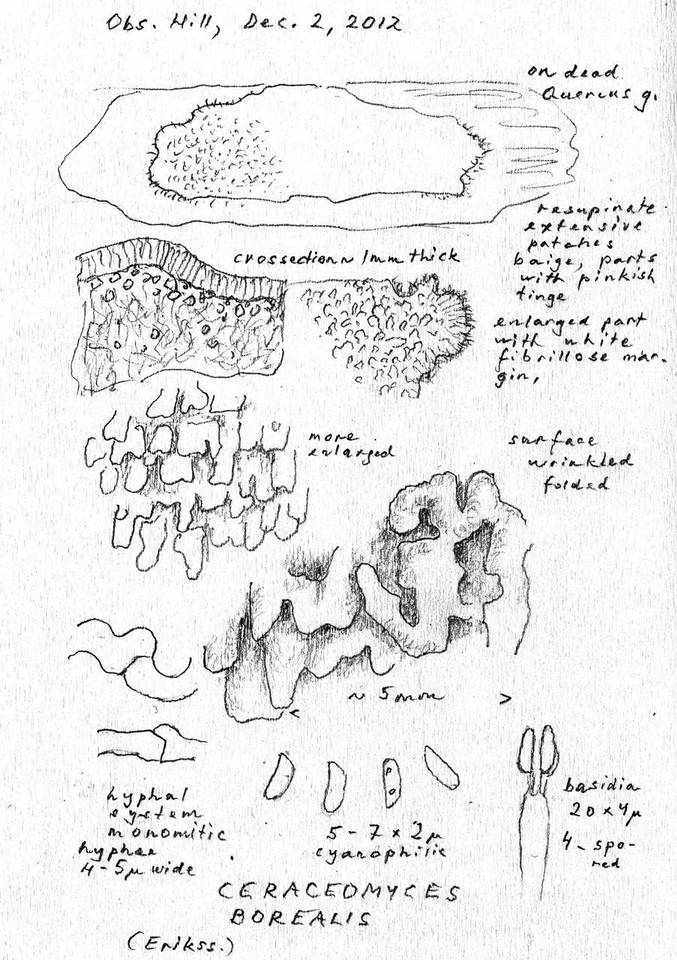 Obs. Hill, Dec. 2, 2012
on dead
Quercus g.
resupinate
extensive
patches
baige, parts
with pinkish
tinge
crossection ~ 1mm thick
enlarged part
with white
fibrillose mar-
gin,
more
enlarged
surface
wrinkled
folded
~ 5 mm >
<
hyphal
system
monomitic
hyphae
4-5µ wide
5 - 7 x 2µ
cyanophilic
basidia
20 x 4µ
4- spo-
red
CERACEOMYCES
BOREALIS
(Erikss.)